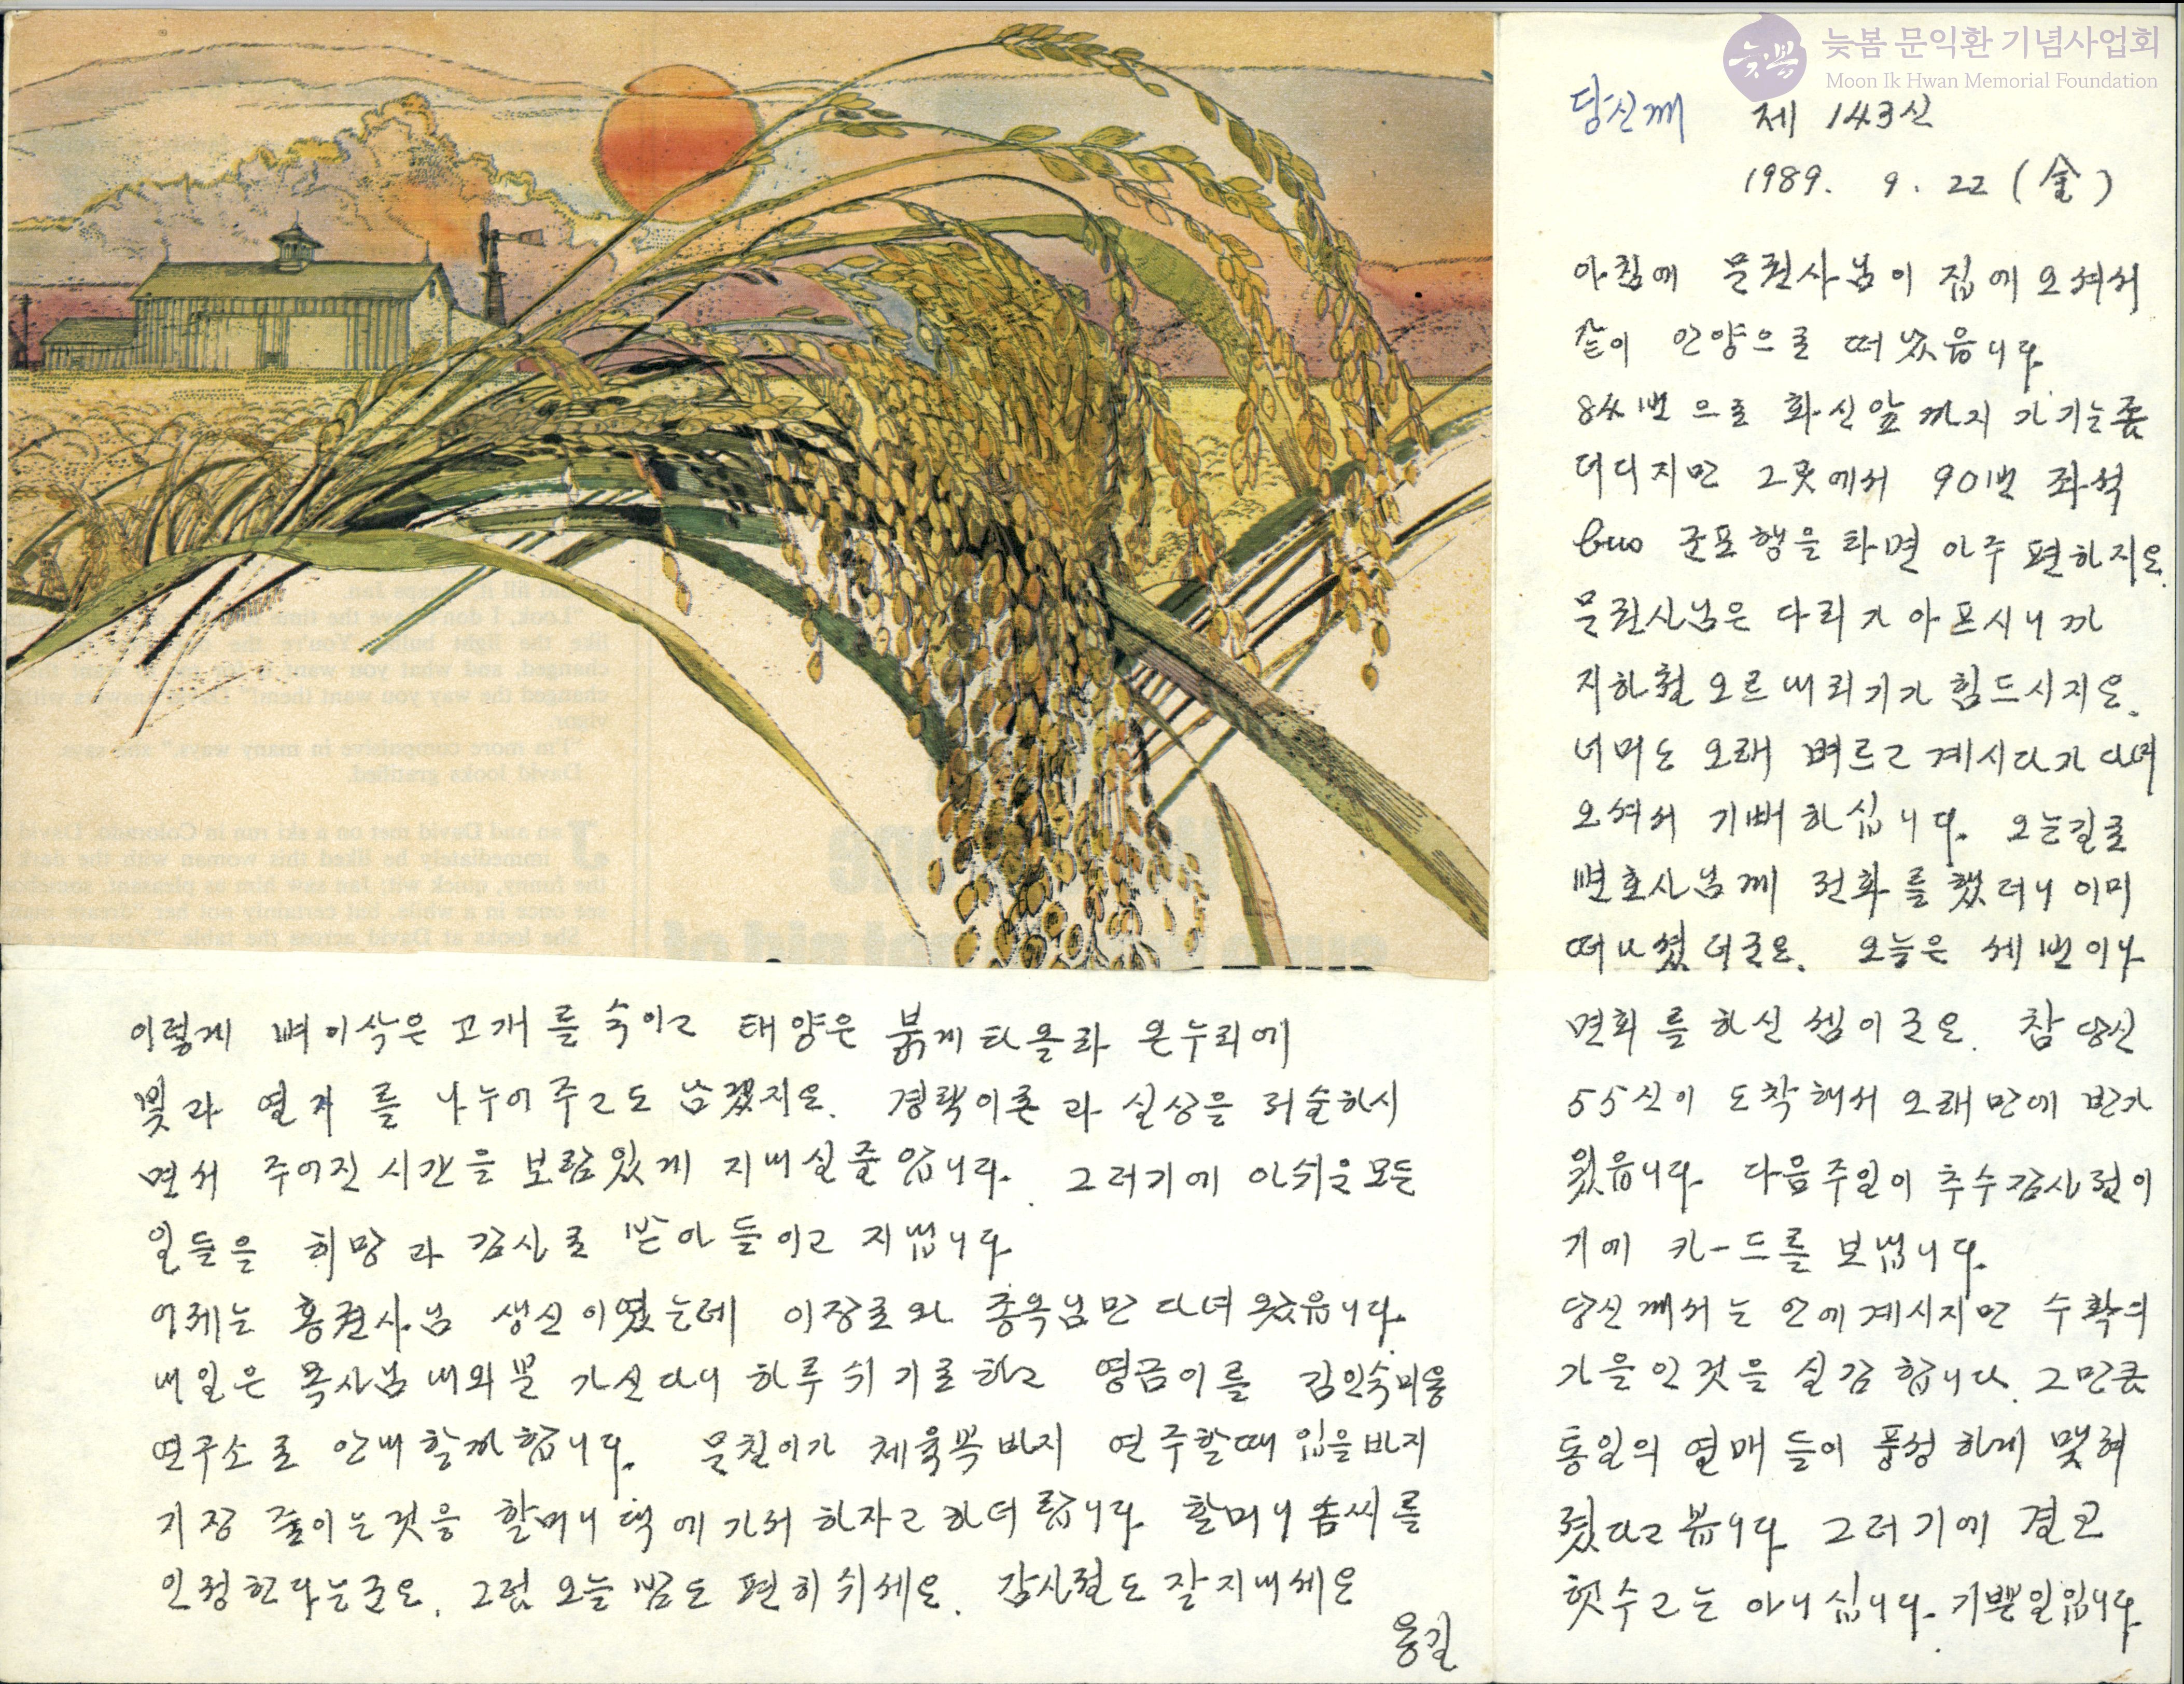 늦봄 문익환 기념사업회
Moon Ik Hwan Memorial Foundation
당신께 제 143신
1989. 9. 22 (金)
아침에 문권사님이 집에 오셔서
같이 안양으로 떠났읍니다.
84번으로 화신앞까지 가기는 좀
더디지만 그곳에서 901번 좌석
bus 군포행을 타면 아주 편하지요.
문권사님은 다리가 아프시니까
지하철 오르내리기가 힘드시지요.
너머도 오래 벼르고 계시다가 다녀
오셔서 기뻐하십니다. 오는길로
변호사님께 전화를 했더니 이미
떠나셨더군요. 오늘은 세번이나
면회를 하신 셈이군요. 참 당신
55신이 도착해서 오래만에 반가
웠읍니다. 다음주일이 추수감사절이
기에 카-드를 보냅니다.
당신께서는 안에 계시지만 수확의
가을인 것을 실감합니다. 그만큼
통일의 열매들이 풍성하게 맺혀
졌다고 봅니다. 그러기에 결코
헛수고는 아니십니다. 기쁜일입니다.
이렇게 벼이삭은 고개를 숙이고 태양은 붉게 타올라 온누리에
빛과 열기를 나누어주고도 남겠지요. 경락이론과 실상을 저술하시
면서 주어진 시간을 보람있게 지내실줄 압니다. 그러기에 아쉬운 모든
일들을 희망과 감사로 받아들이고 지냅니다.
어제는 홍권사님 생신이였는데 이장로와 종옥님만 다녀왔읍니다.
내일은 목사님 내외분 가신다니 하루 쉬기로 하고 영금이를 김인숙미용
연구소로 안내할까 합니다. 문칠이가 체육복바지 연주할때 입을바지
기장 줄이는것을 할머니댁에 가서 하자고 하더랍니다. 할머니 솜씨를
인정한다는군요. 그럼 오늘 밤도 편히 쉬세요. 감사절도 잘지내세요
용길